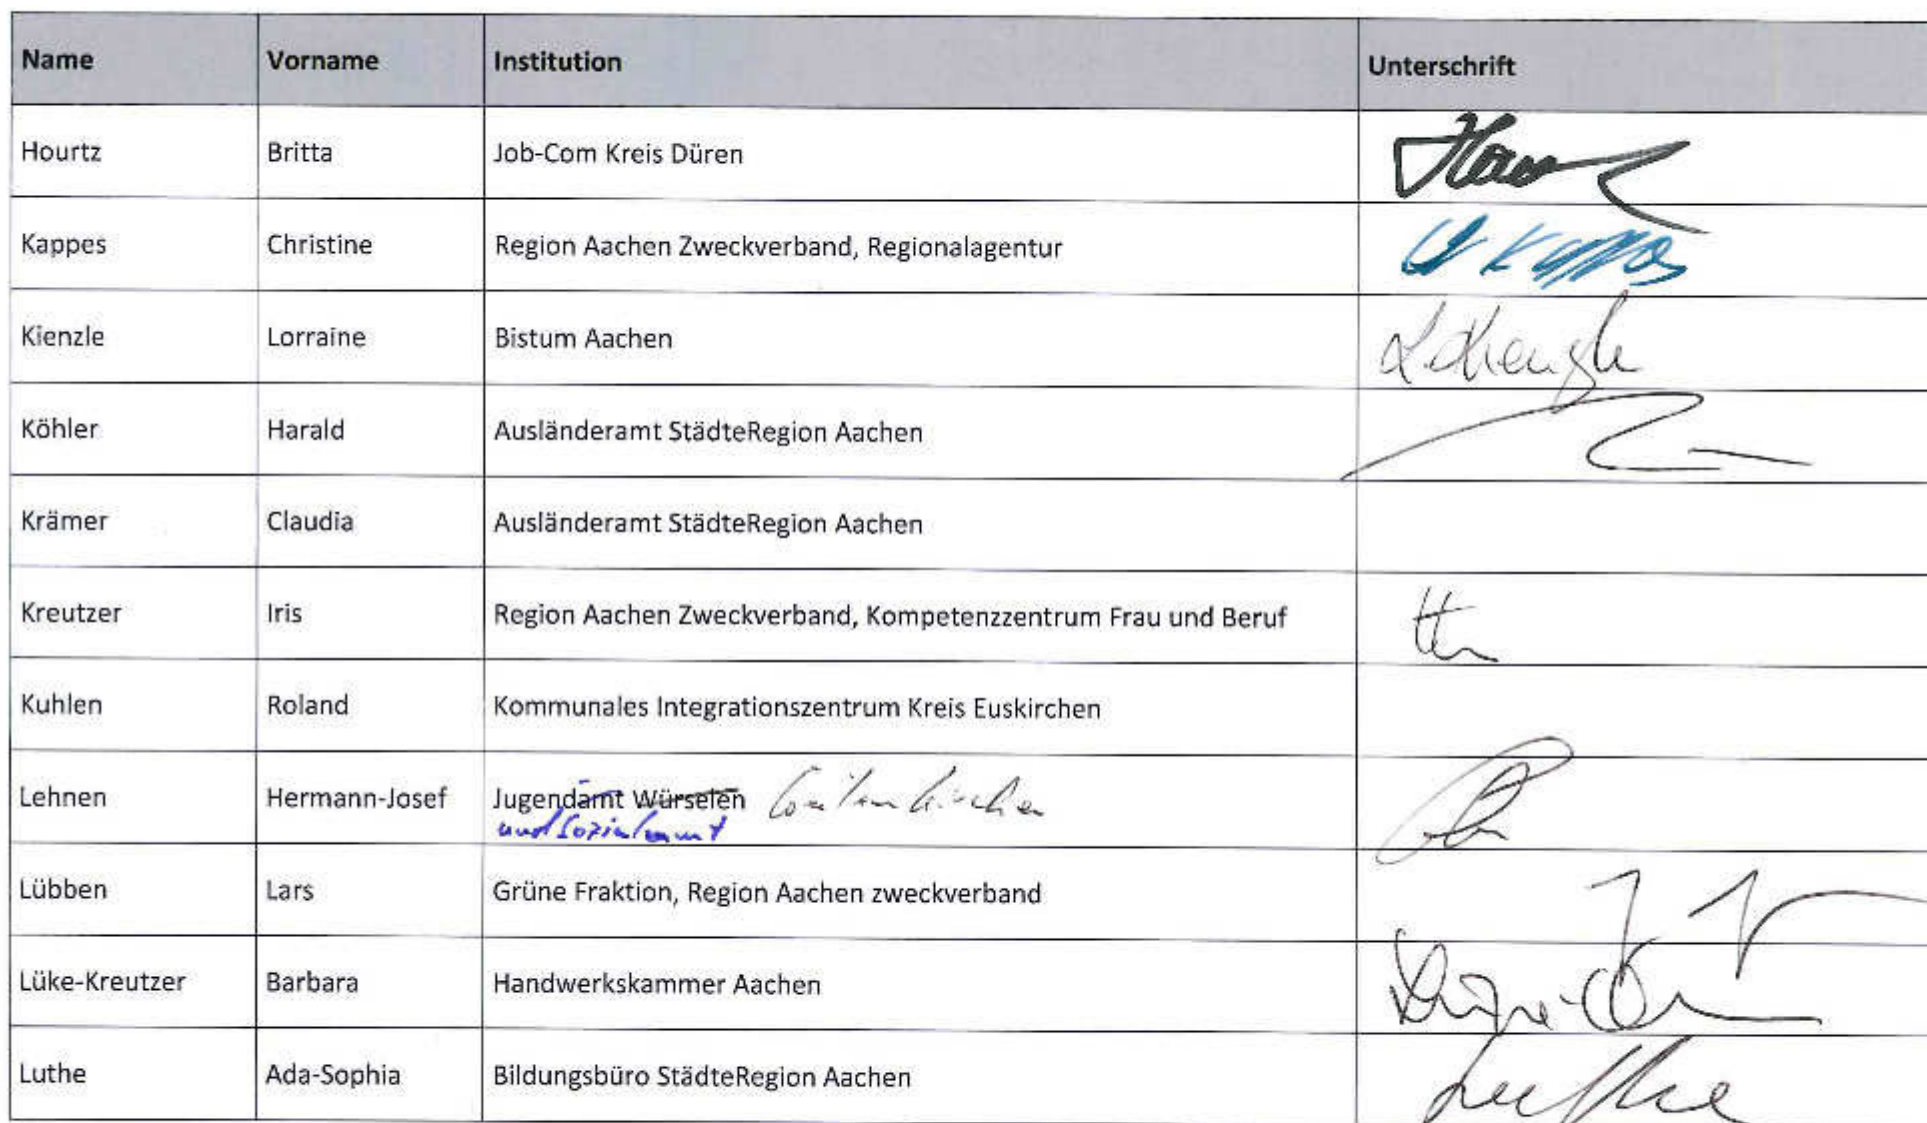 Name Vorname Institution Unterschrift
Hourtz Britta Job-Com Kreis Düren
Kappes Christine Region Aachen Zweckverband, Regionalagentur
Kienzle Lorraine Bistum Aachen
Köhler Harald Ausländeramt StädteRegion Aachen
Krämer Claudia Ausländeramt StädteRegion Aachen
Kreutzer Iris Region Aachen Zweckverband, Kompetenzzentrum Frau und Beruf
Kuhlen Roland Kommunales Integrationszentrum Kreis Euskirchen
Lehnen Hermann-Josef Jugendamt Würselen
und Sozialamt
Lübben Lars Grüne Fraktion, Region Aachen zweckverband
Lüke-Kreutzer Barbara Handwerkskammer Aachen
Luthe Ada-Sophia Bildungsbüro StädteRegion Aachen Luthe